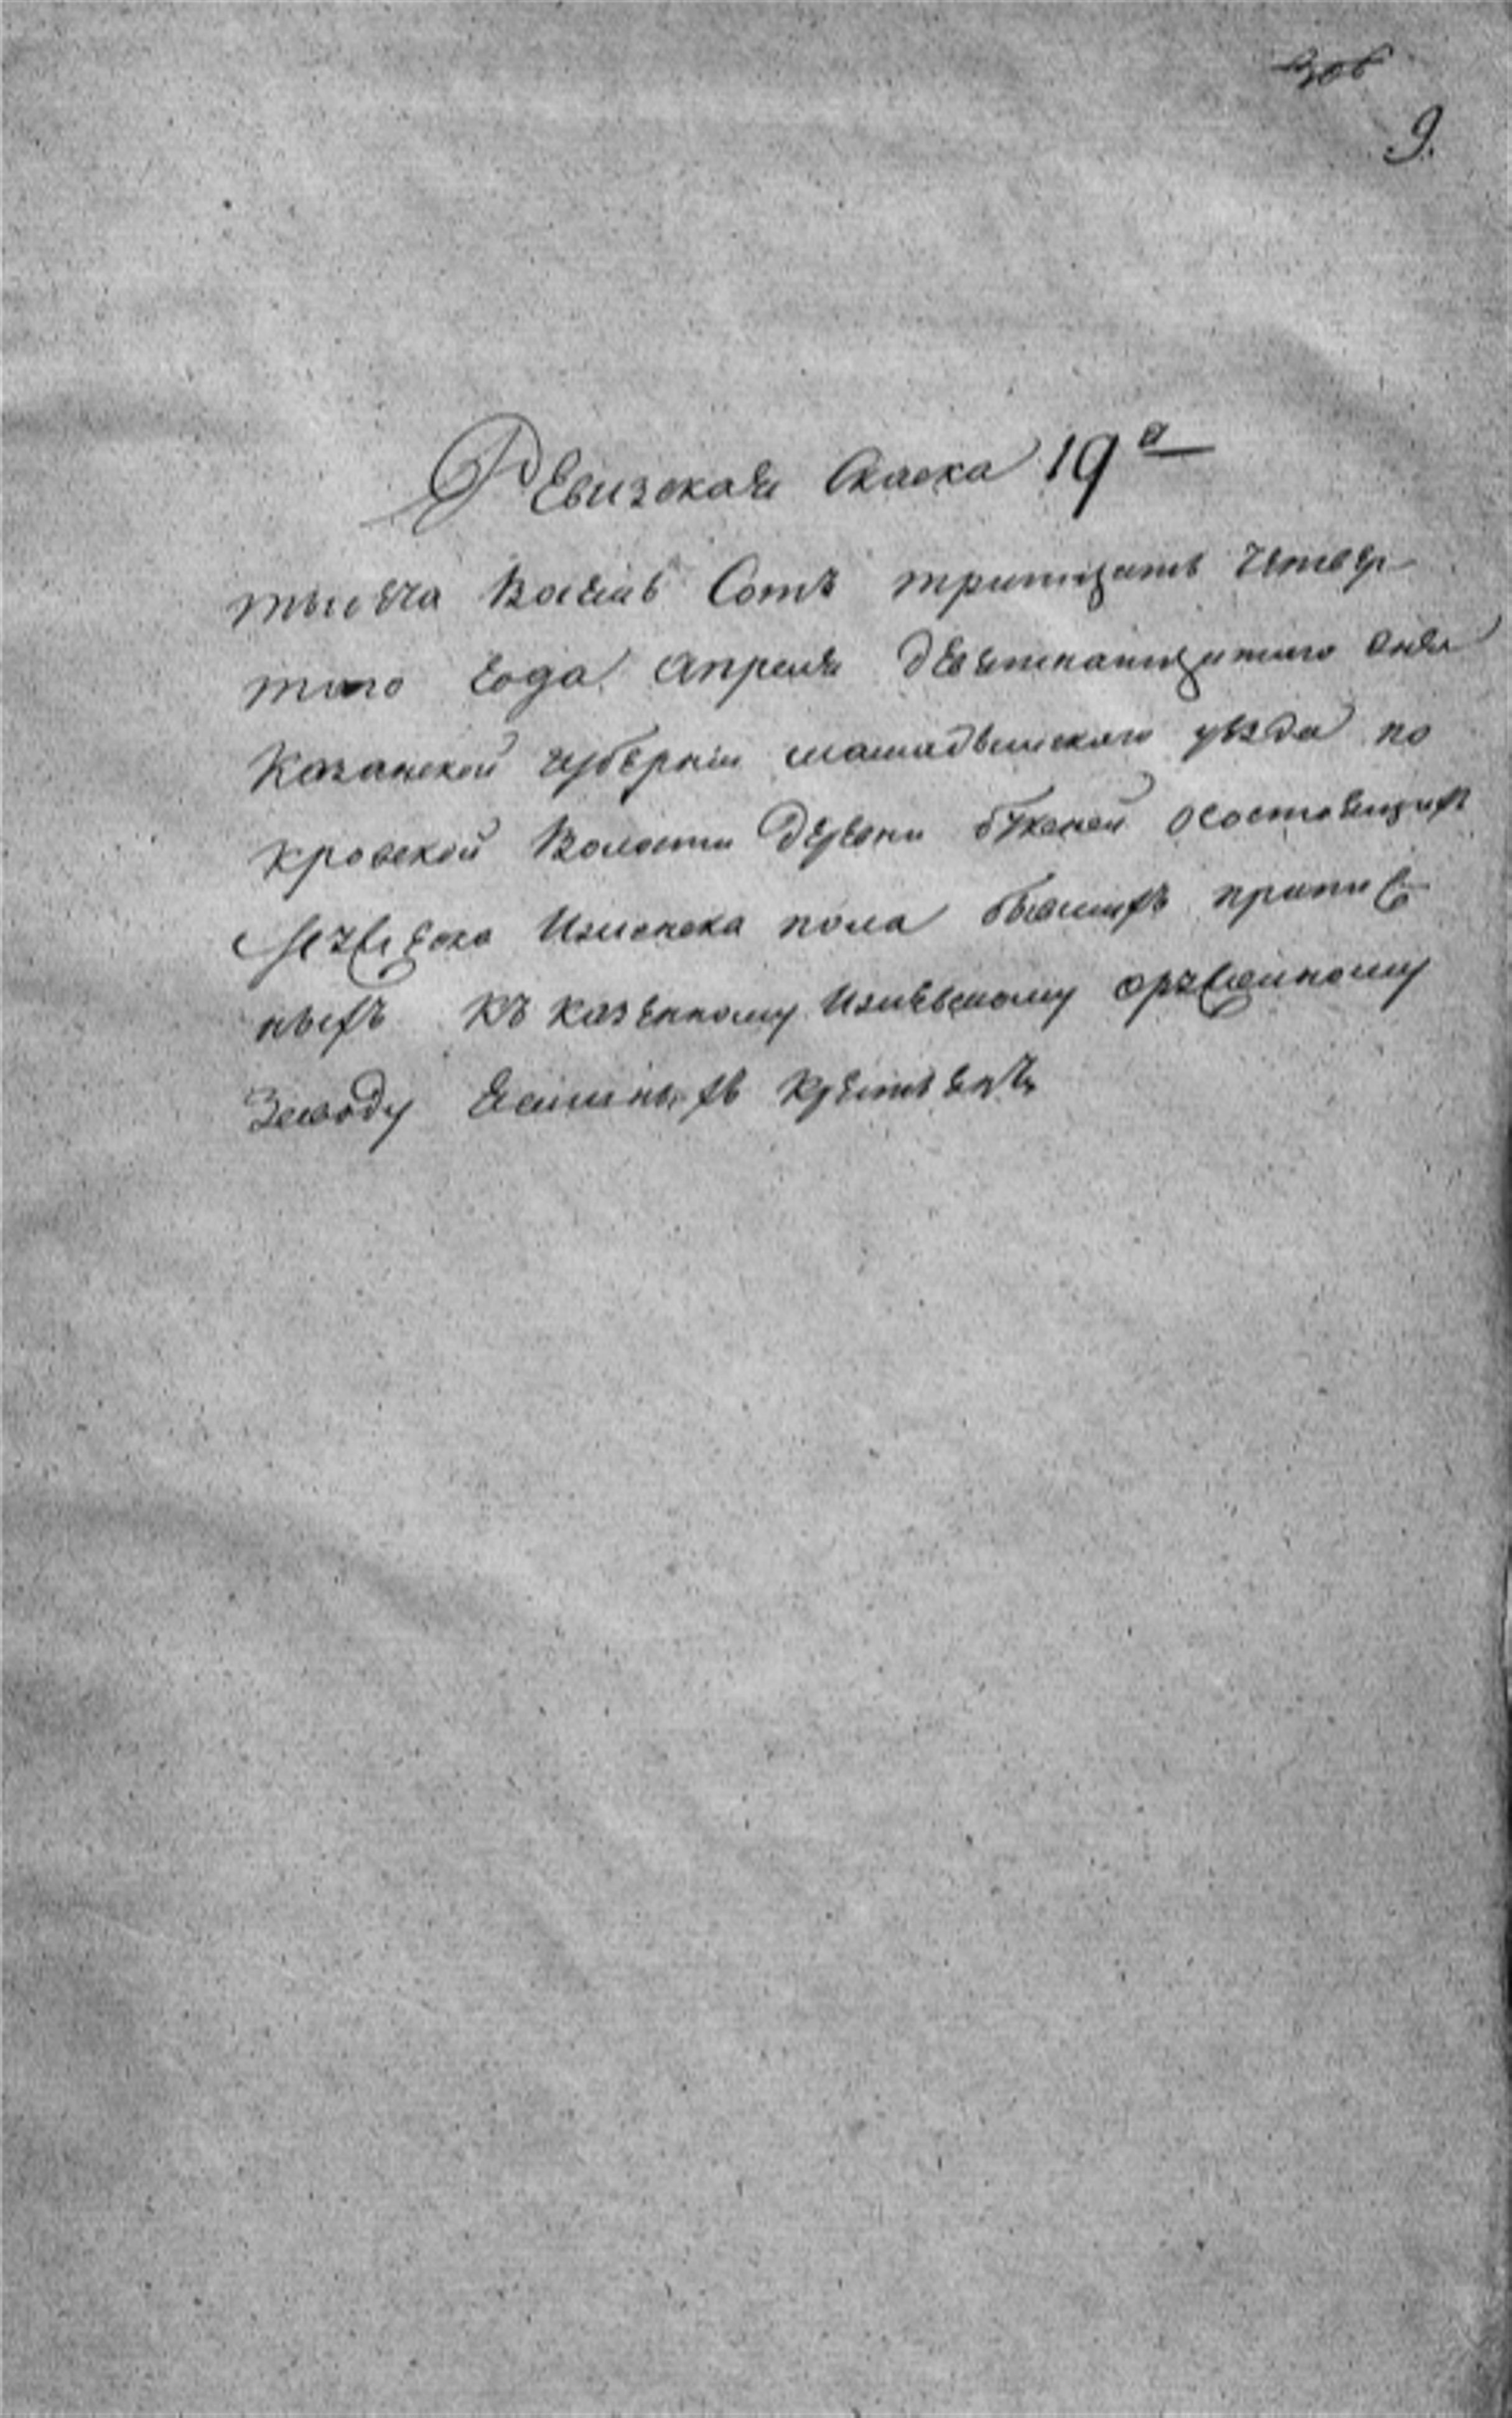 306
9.
Ревизская Скаска 19ᵃ
тысеча Восемь Сотъ тритцать Четвер
таго Года апреля девятнатцатого дня
Казанской губерніи мамадышского уѣзда по
кровской Волости деревни осостоящихъ
Мужеска Изженска пола бывшихъ припис
ныхъ къ казенному Ижевскому оружейному
Заводу ясашныхъ крестьянъ